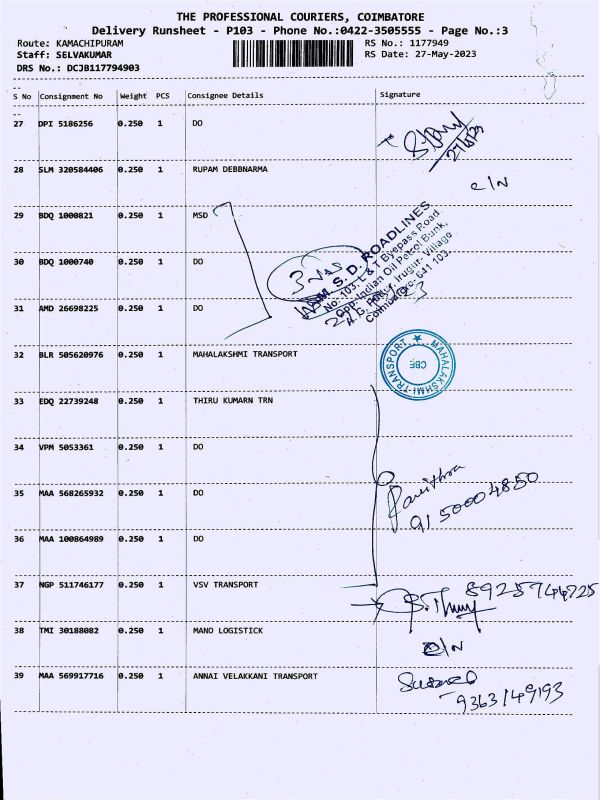 THE PROFESSIONAL COURIERS, COIMBATORE
Delivery Runsheet - P103 - Phone No.:0422-3505555 - Page No.:3
Route: KAMACHIPURAM RS No.: 1177949
Staff: SELVAKUMAR RS Date: 27-May-2023
DRS No.: DCJB117794903
S No Consignment No Weight PCS Consignee Details Signature
27 DPI 5186256 0.250 1 DO
27/5/23
28 SLM 320584406 0.250 1 RUPAM DEBBNARMA
C/N
29 BDQ 1000821 0.250 1 MSD
30 BDQ 1000740 0.250 1 DO
3 Nos
M. S. D. ROADLINES
No: 103, L & T Byepass Road
Opp: Indian Oil Petrol Bunk,
Irugur- Village
Coimbatore- 641 103.
31 AMD 26698225 0.250 1 DO
32 BLR 505620976 0.250 1 MAHALAKSHMI TRANSPORT
MAHALAKSHMI TRANSPORT
CBE
33 EDQ 22739248 0.250 1 THIRU KUMARN TRN
34 VPM 5053361 0.250 1 DO
35 MAA 568265932 0.250 1 DO
Pavithra
91 5000 4850
36 MAA 100864989 0.250 1 DO
37 NGP 511746177 0.250 1 VSV TRANSPORT
8925744725
38 TMI 30188082 0.250 1 MANO LOGISTICK
C/N
39 MAA 569917716 0.250 1 ANNAI VELAKKANI TRANSPORT
9363149193